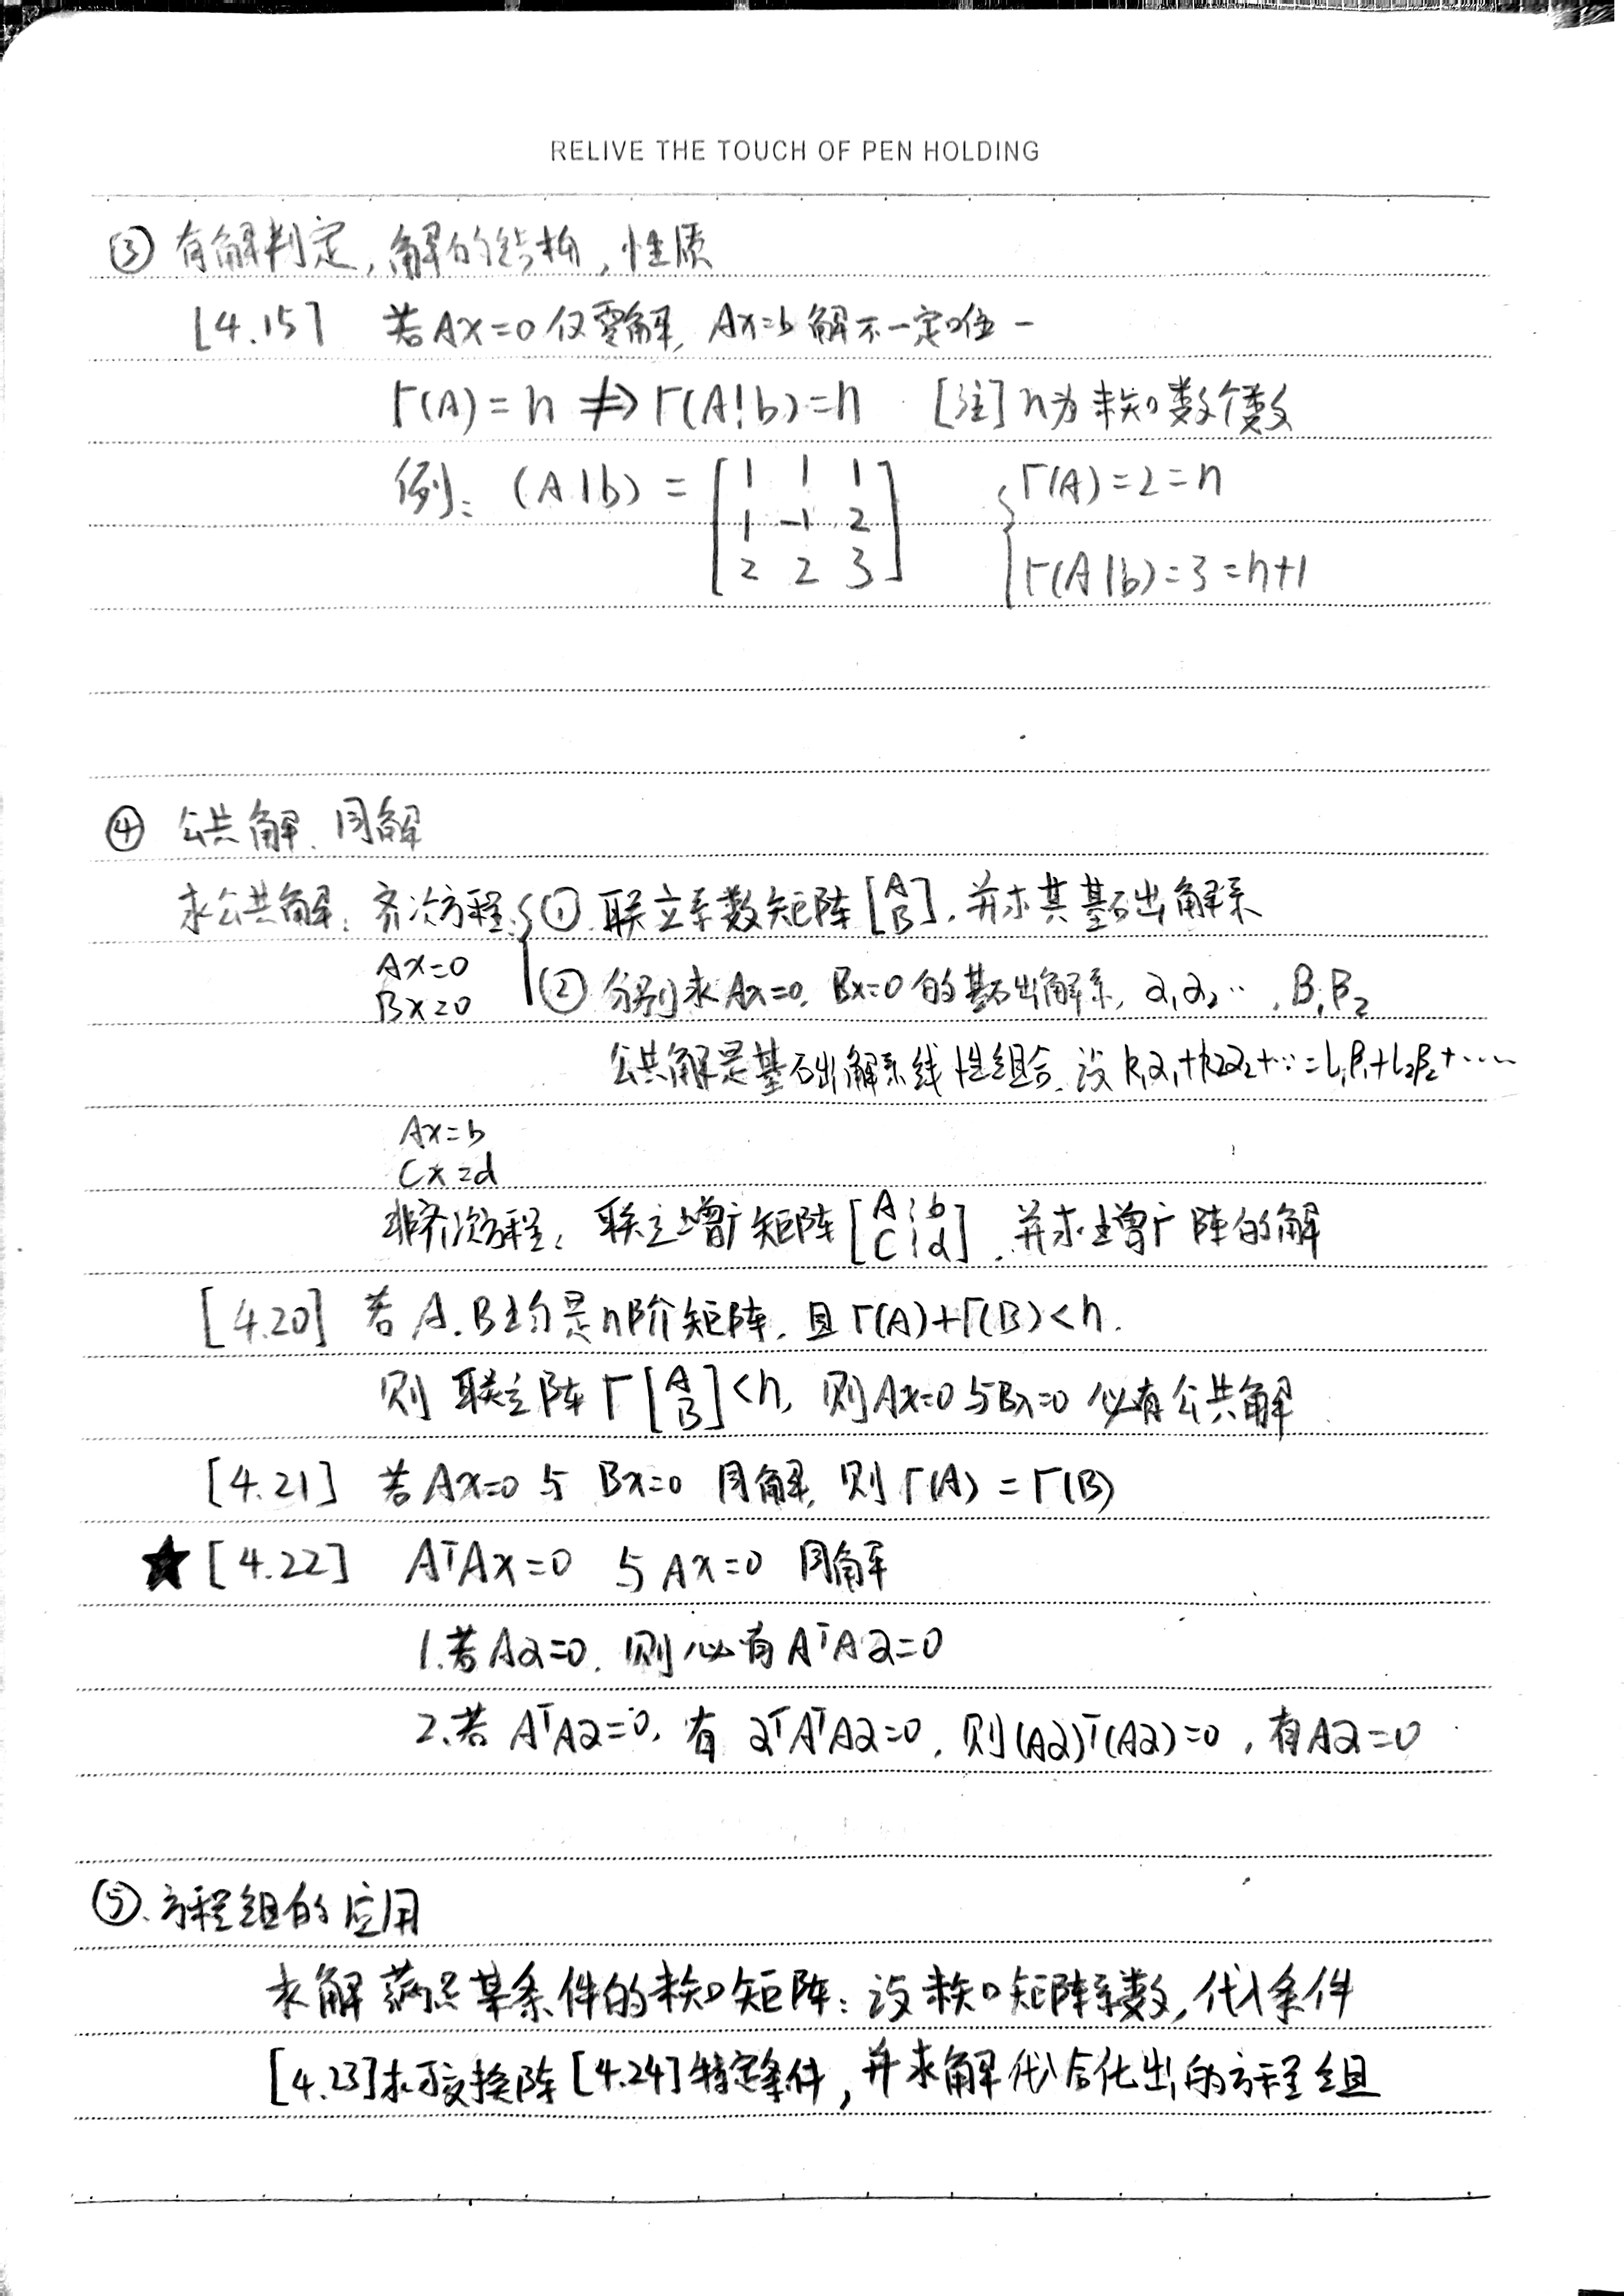 RELIVE THE TOUCH OF PEN HOLDING
③ 有解判定,解的结构,性质
[4.15] 若Ax=0仅零解, Ax=b解不一定唯一
r(A)=n ⇏ r(A¦b)=n [注]n为未知数个数
例: (A|b) = [1 1 1 { r(A)=2=n
1 -1 2
2 2 3] r(A|b)=3=n+1
④ 公共解、同解
求公共解: 齐次方程 { ① 联立系数矩阵[A B], 并求其基础解系
Ax=0
Bx=0 ② 分别求Ax=0, Bx=0的基础解系, α₁α₂…, β₁β₂
公共解是基础解系线性组合, 设k₁α₁+k₂α₂+…=l₁β₁+l₂β₂+……
Ax=b
Cx=d
非齐次方程: 联立增广矩阵[A¦b C¦d], 并求增广阵的解
[4.20] 若A.B均是n阶矩阵, 且r(A)+r(B)<n.
则联立阵r[A B]<n, 则Ax=0与Bx=0必有公共解
[4.21] 若Ax=0与Bx=0同解, 则r(A)=r(B)
★[4.22] AᵀAx=0 与Ax=0 同解
1.若Aα=0, 则必有AᵀAα=0
2.若AᵀAα=0, 有αᵀAᵀAα=0, 则(Aα)ᵀ(Aα)=0, 有Aα=0
⑤、方程组的应用
求解满足某条件的未知矩阵: 设未知矩阵系数, 代入条件
[4.23]求可交换阵[4.24]特定条件, 并求解代入后化出的方程组